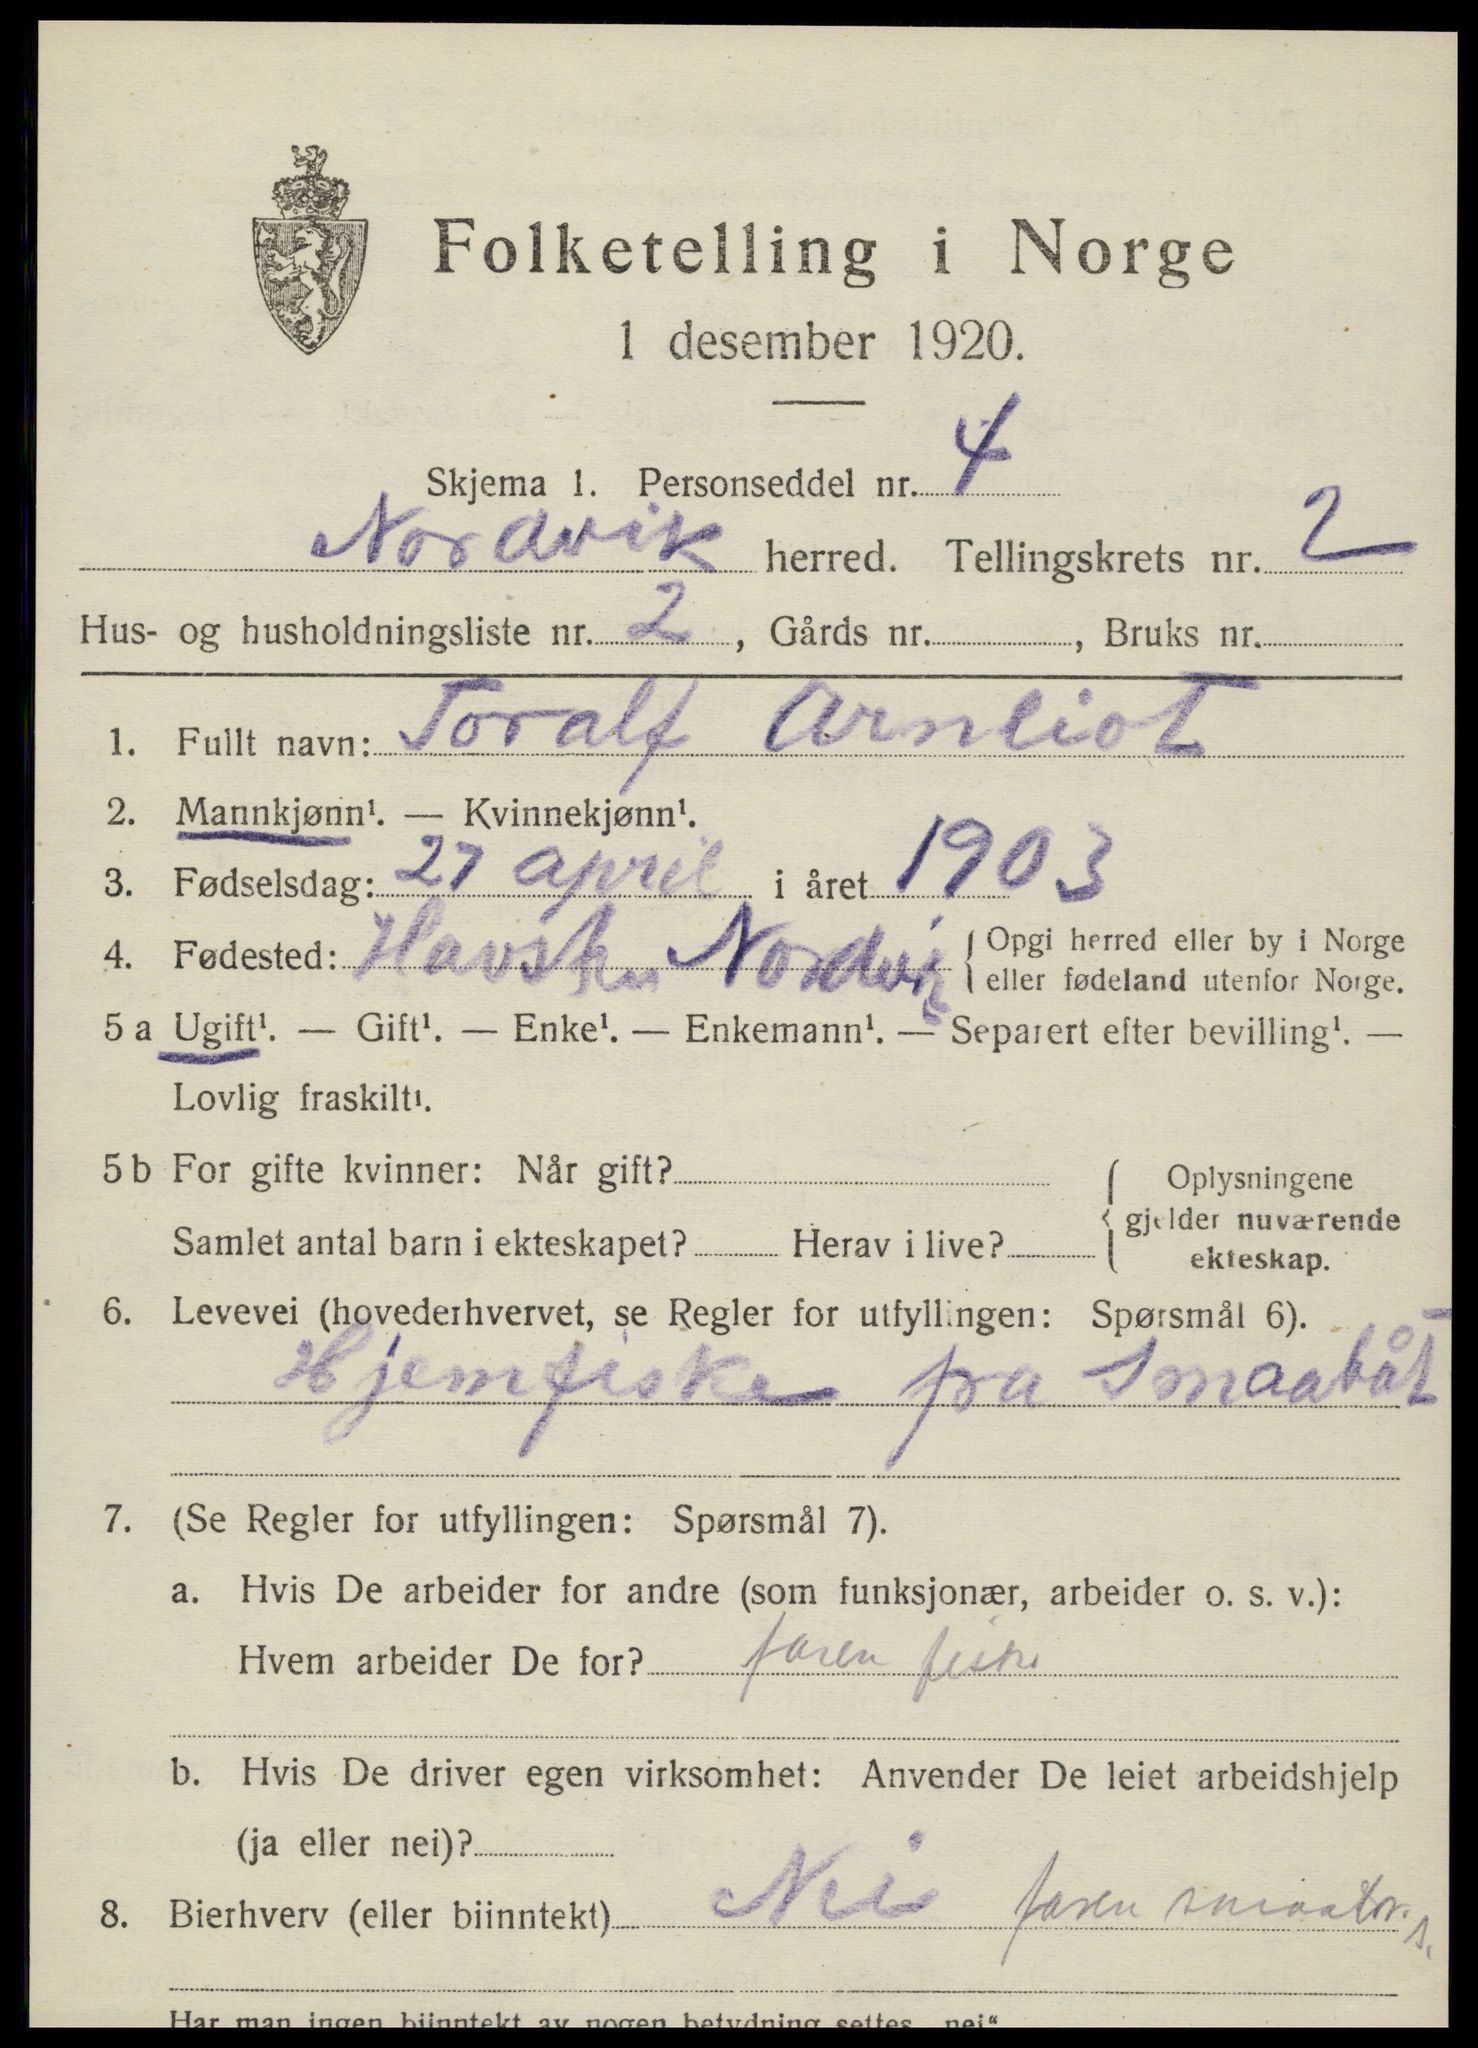 Folketelling i Norge
1 desember 1920.
Skjema 1. Personseddel nr. 4
Nordvik herred. Tellingskrets nr. 2
Hus- og husholdningsliste nr. 2, Gårds nr. , Bruks nr.
1. Fullt navn: Toralf Arnliot
2. Mannkjønn¹. — Kvinnekjønn¹.
3. Fødselsdag: 27 april i året 1903
4. Fødested: Nordvik { Opgi herred eller by i Norge
eller fødeland utenfor Norge.
5 a Ugift¹. — Gift¹. — Enke¹. — Enkemann¹. — Separert efter bevilling¹. —
Lovlig fraskilt¹.
5 b For gifte kvinner: Når gift?
Samlet antal barn i ekteskapet? Herav i live?
{ Oplysningene
gjelder nuværende
ekteskap.
6. Levevei (hovederhvervet, se Regler for utfyllingen: Spørsmål 6).
Hjemfiske fra Smaabåt
7. (Se Regler for utfyllingen: Spørsmål 7).
a. Hvis De arbeider for andre (som funksjonær, arbeider o. s. v.):
Hvem arbeider De for? faren fisker
b. Hvis De driver egen virksomhet: Anvender De leiet arbeidshjelp
(ja eller nei)?
8. Bierhverv (eller biinntekt) Nei faren smaabr.
Har man ingen biinntekt av nogen betydning settes „nei“